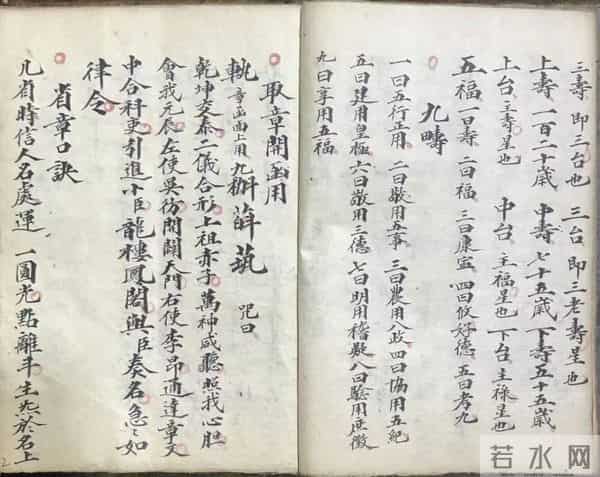 三壽 即三台也 三台 即三老壽星也
上壽一百二十歲 中壽七十五歲 下壽五十五歲
上台 主壽星也 中台 主福星也 下台 主祿星也
五福 一曰壽 二曰福 三曰康寧 四曰攸好德 五曰考九
九疇
一曰五行正用 二曰敬用五事 三曰農用八政 四曰協用五紀
五曰建用皇極 六曰敬用三德 七曰明用稽疑 八曰驗用庶徵
九曰享用五福
取章開函用
章函面上用九 咒曰
乾坤交泰二儀合形上祖赤子萬神咸聽照我心胆
會我元辰左使吳彷開闢天門右使李昂通達章文
中合科更引進小臣龍樓鳳閣與臣奏名急〻如
律令
省章口訣
凡省時信人名處運一圓光點離斗生炁於名上
若水网